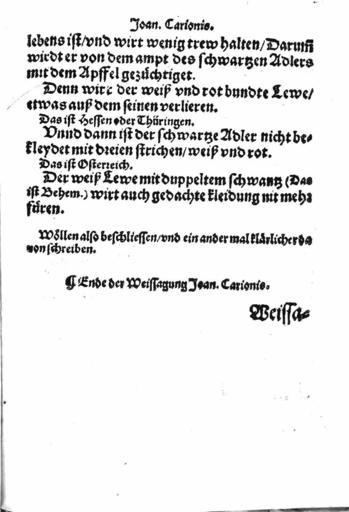 Joan. Carionis.
lebens ist/vnd wirt wenig trew halten/Darumb
wirdt er von dem ampt des schwartzen Adlers
mit dem Apffel gezüchtiget.
Denn wirt der weiß vnd rot bundte Lewe/
etwas auß dem seinen verlieren.
Das ist Hessen oder Thüringen.
Vnnd dann ist der schwartze Adler nicht be-
kleydet mit dreien strichen/weiß vnd rot.
Das ist Osterreich.
Der weiß Lewe mit duppeltem schwantz (Das
ist Behem.) wirt auch gedachte kleidung nit mehr
füren.
Wöllen also beschliessen/vnd ein ander mal klärlicher da
von schreiben.
¶ Ende der Weissagung Joan. Carionis.
Weissa-